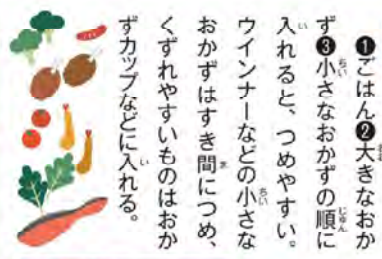 ❶ごはん❷大きなおか
ず❸小さなおかずの順に
入れると、つめやすい。
ウインナーなどの小さな
おかずはすき間につめ、
くずれやすいものはおか
ずカップなどに入れる。